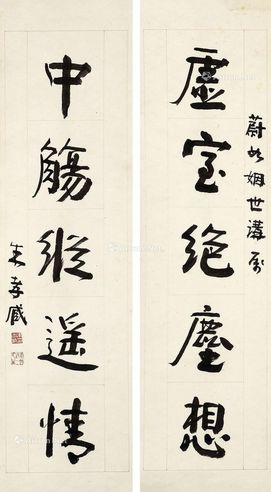 蔚如姻世講屬
虛室絕塵想
中觴縱遥情
朱孝臧